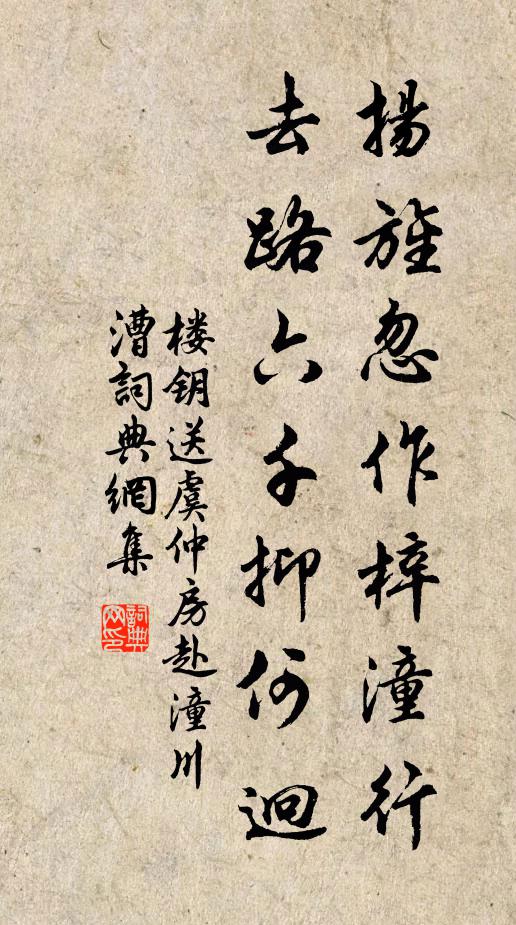 揚旌忽作梓潼行
去路六千抑何迥
楼钥送虞仲房赴潼川
漕詞典網集
詞典网印